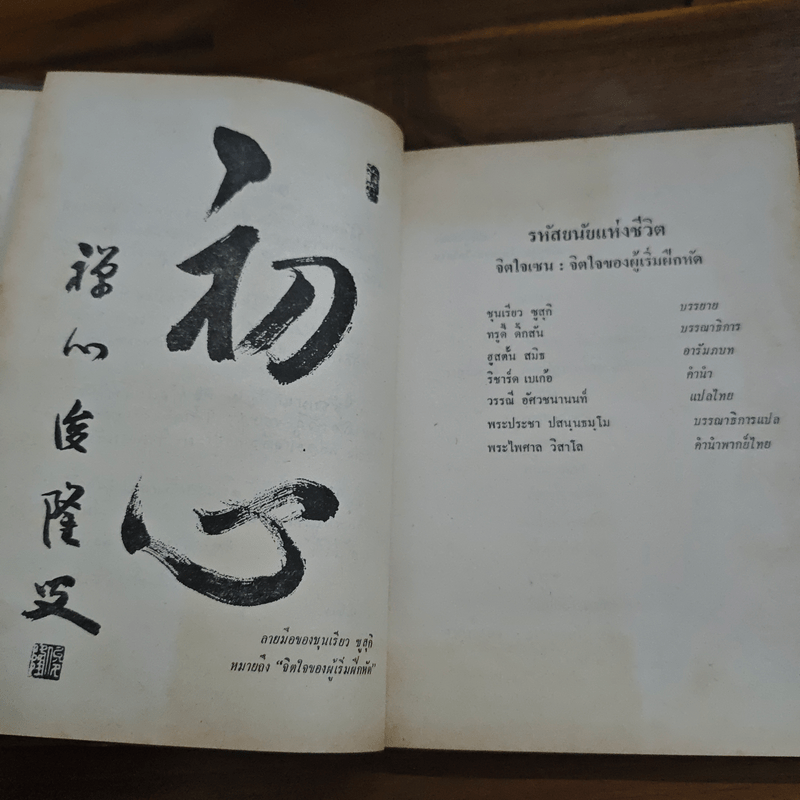 初心
禅心俊隆叟
ลายมือของชุนเรียว ซูสุกิ
หมายถึง “จิตใจของผู้เริ่มฝึกหัด”
รหัสยนัยแห่งชีวิต
จิตใจเซน : จิตใจของผู้เริ่มฝึกหัด
ชุนเรียว ซูสุกิ บรรยาย
ทรูดี้ ดิ๊กสัน บรรณาธิการ
ฮูสตั้น สมิธ อารัมภบท
ริชาร์ด เบเก้อ คำนำ
วรรณี อัศวชนานนท์ แปลไทย
พระประชา ปสนฺนธมฺโม บรรณาธิการแปล
พระไพศาล วิสาโล คำนำพากย์ไทย